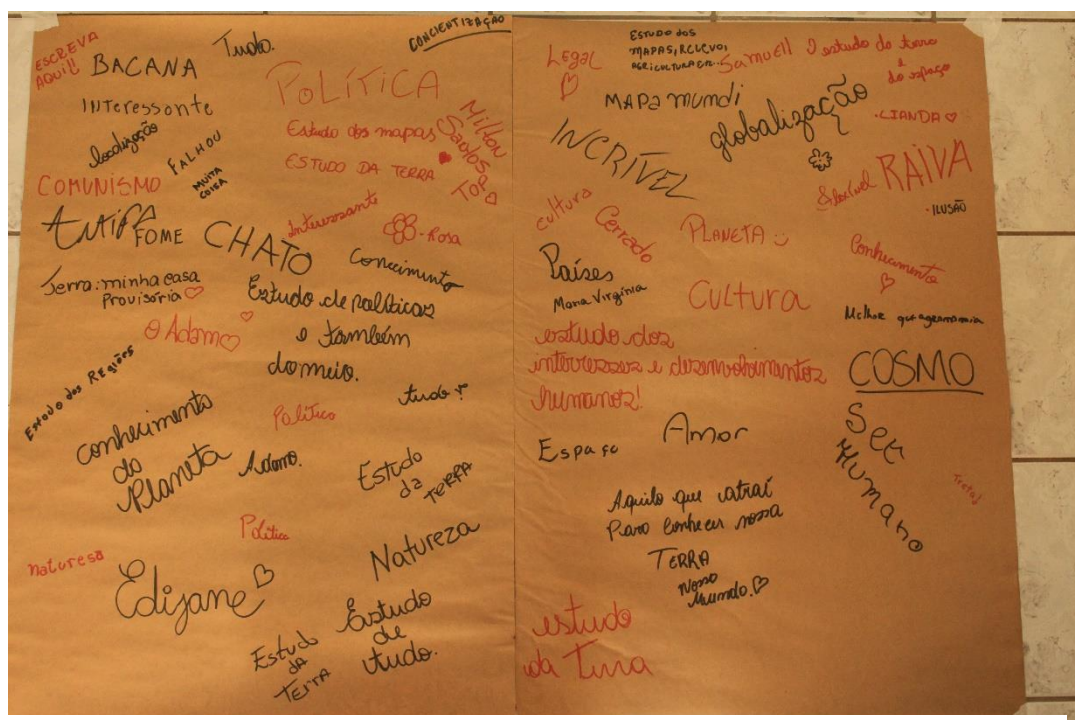 ESCREVA
AQUI!!
BACANA
Tudo.
CONCIENTIZAÇÃO
INTeressante
POLÍTICA
localização
FALHOU
MUITA
COISA
Estudo dos mapas
Milton
Santos
COMUNISMO
ESTUDO DA TERRA
ANTIFA
FOME
CHATO
Interessante
- Rosa
Terra: minha casa
Provisória
Conecimento
Estudo de políticas
e também
do meio.
O Adamo
Estudo das REgiões
tudo
conhecimento
do
Planeta
Político
Adamo.
Estudo
da
TERRA
Política
Natureza
naturesa
Edijane
Estudo
de
tudo.
Estudo
DA
TErrA
Legal
Estudo dos
MAPAS, RELEVO,
AGRICULTURA
Samuell
O estudo da terra
e
do espaço
MAPA mundi
globalização
- LIANDA
INCRÍVEL
RAIVA
- ILUSÃO
cultura
Cerrado
PLANETA
Conhecimento
Países
Maria Virgínia
CULtura
Melhor que agronomia
estudo dos
interresses e desenvolvimentos
humanos!
COSMO
Espaço
Amor
Ser
Humano
Treta!
Aquilo que atraí
Para conhecer nossa
TERRA
Nosso
Mundo.
estudo
da Terra